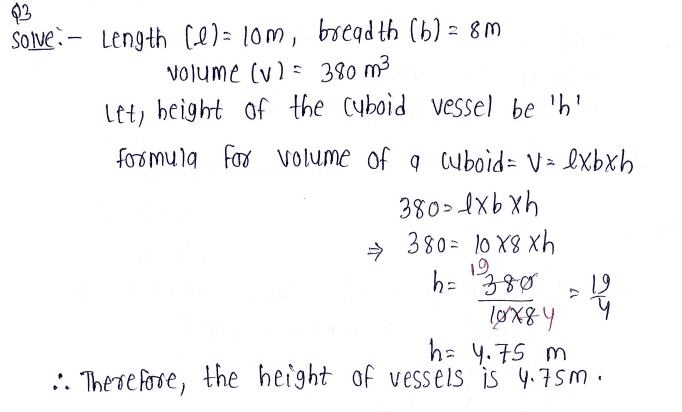 Q3
Solve:- Length (l) = 10m, breadth (b) = 8m
volume (v) = 380 m³
Let, height of the cuboid vessel be 'h'
formula for volume of a cuboid = V = lxbxh
380 = lxbxh
⇒ 380 = 10x8xh
h = 19 380/10x8 4 = 19/4
h = 4.75 m
∴ Therefore, the height of vessels is 4.75m.